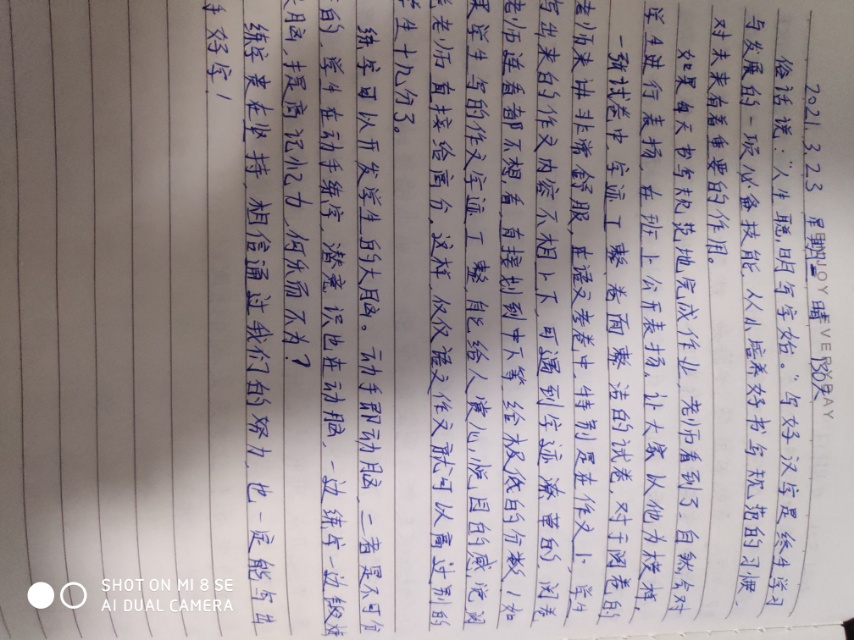 2021.3.23 星期二 晴 130天
ENJOY EVERYDAY
俗话说："人生聪明写字始。"写好汉字是终生学习
与发展的一项必备技能，从小培养好书写规范的习惯，
对未来有着重要的作用。
如果每天书写规范地完成作业，老师看到了，自然会对
学生进行表扬，在班上公开表扬，让大家以他为榜样。
一张试卷中，字迹工整，卷面整洁的试卷，对于阅卷的
老师来讲非常舒服，在语文考卷中，特别是在作文上，学生
写出来的作文内容不相上下，可遇到字迹潦草的，阅卷
老师连看都不想看，直接划到中下等，给极低的分数，如
果学生写的作文字迹工整，自己给人赏心悦目的感觉，阅
老师直接给高分。这样，仅仅语文作文就可以高过别的
学生十几分了。
练字可以开发学生的大脑。动手即动脑，二者是不可分
的，学生在动手练字，潜意识也在动脑，一边练字一边锻炼
大脑，提高记忆力，何乐而不为？
练字贵在坚持，相信通过我们的努力，也一定能写出
手好字！
SHOT ON MI 8 SE
AI DUAL CAMERA